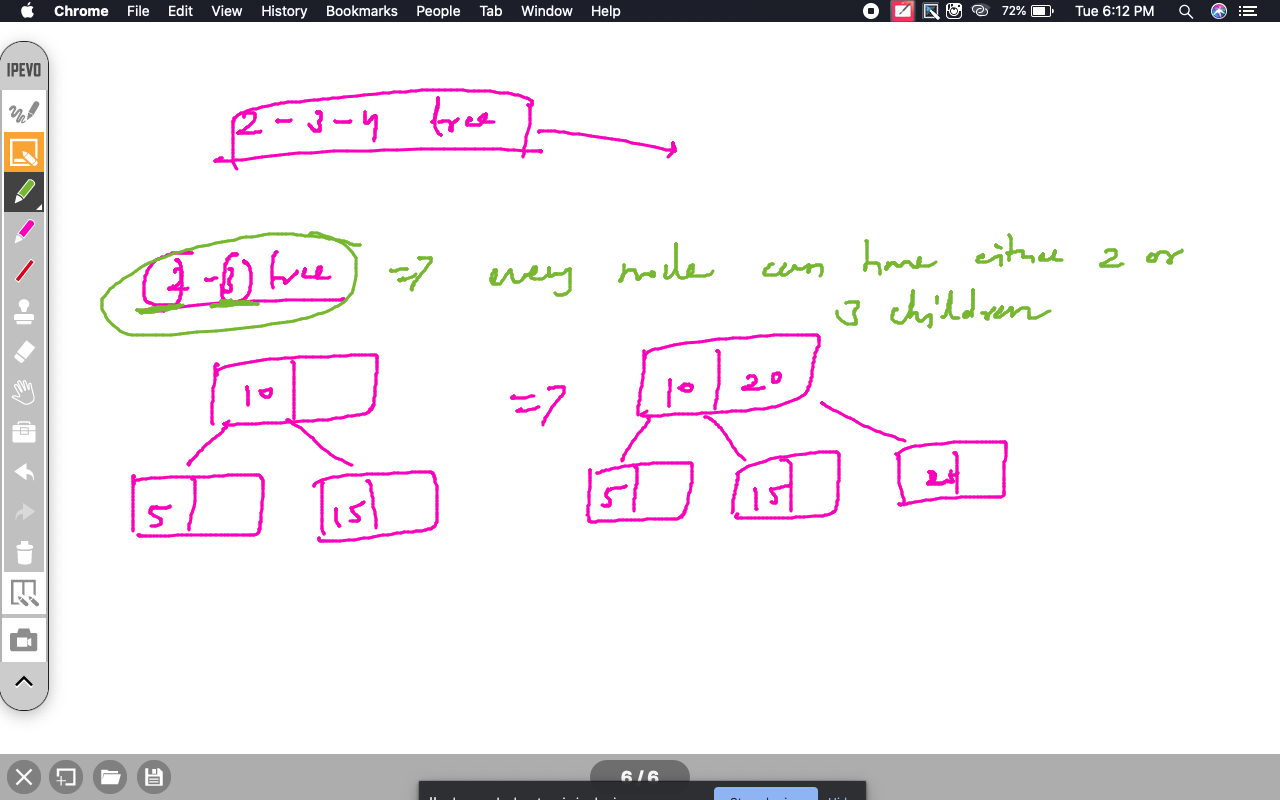 Chrome File Edit View History Bookmarks People Tab Window Help 72% Tue 6:12 PM
IPEVO
2-3-4 tree
2-3 tree => every node can have either 2 or
3 children
10 => 10 20
5 15 5 15
6 / 6